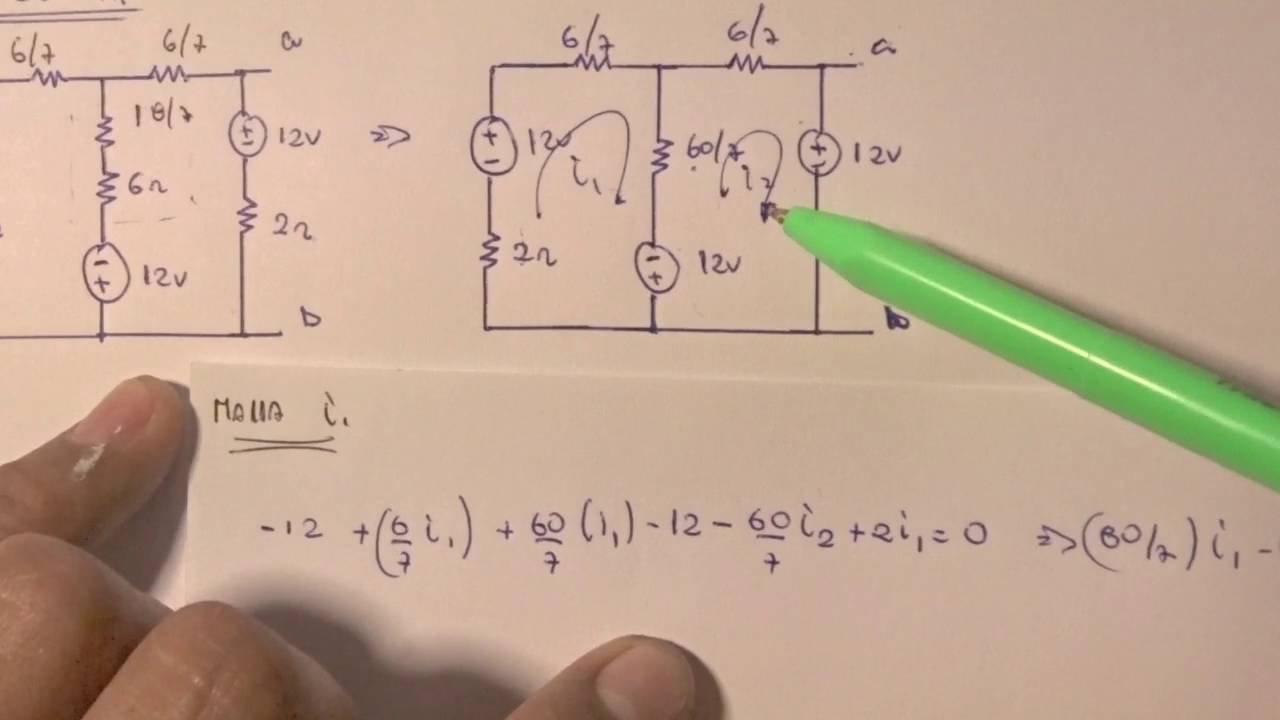 6/7 6/7 a
18/7
12v
6Ω
2Ω
12v
b
⇒
6/7 6/7 a
+ - 12v
i₁
60/7
i₂
+ - 12v
2Ω
- + 12v
b
MALLA i₁
-12 +(6/7 i₁) + 60/7 (i₁) -12 - 60/7 i₂ + 2i₁ = 0 ⇒ (80/7) i₁ -